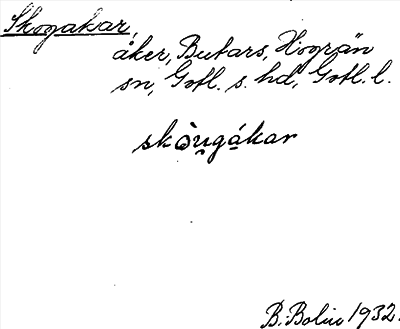 Skogakar,
åker, Butars, Hogrän
sn, Gotl. s. hd, Gotl. l.
skòu̯gá̱kar
B. Bolin 1932.